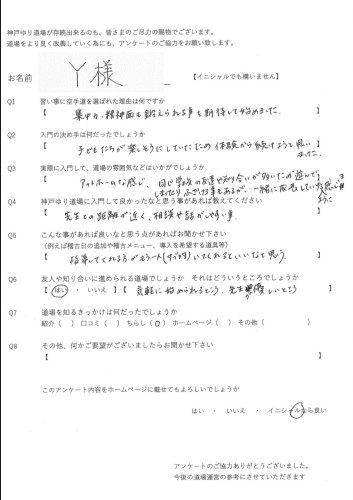 神戸ゆり道場が存続出来るのも、皆さまのご尽力の賜物でございます。
道場をより良く改善していく為にも、アンケートのご協力をお願い致します。
お名前 Y様 【イニシャルでも構いません】
Q1 習い事に空手道を選ばれた理由は何ですか
【 集中力、精神面も鍛えられる事を期待して始めました。 】
Q2 入門の決め手は何だったでしょうか
【 子どもたちが楽しそうにしていたため体験から続けようと思いました。 】
Q3 実際に入門して、道場の雰囲気などはいかがでしょうか
【 アットホームな感じ、同じ学校の友達や知り合いが多いため遊んで
しまったりふざける事もあるが、一緒に成長していける
Q4 神戸ゆり道場に入門して良かったなと思う事があれば教えてください
【 先生との距離が近く、相談や話がしやすい事 】
Q5 こんな事があれば良いなと思う点があればお聞かせ下さい
（例えば稽古日の追加や稽古メニュー、導入を希望する道具等）
【 指導してくれる方がもう一人（サブ的な）いてくれるといいなと思う。 】
Q6 友人や知り合いに進められる道場でしょうか それはどういうところでしょうか
【 はい ・ いいえ 】 【 気軽に始められるところ、先生が優しいところ
Q7 道場を知るきっかけは何だったでしょうか
紹介（ ）口コミ（ ）ちらし（○）ホームページ（ ）その他（ ）
Q8 その他、何かご要望がございましたらお聞かせ下さい
【 】
このアンケート内容をホームページに載せてもよろしいでしょうか
はい ・ いいえ ・ イニシャルなら良い
アンケートのご協力ありがとうございました。
今後の道場運営の参考にさせていただきます